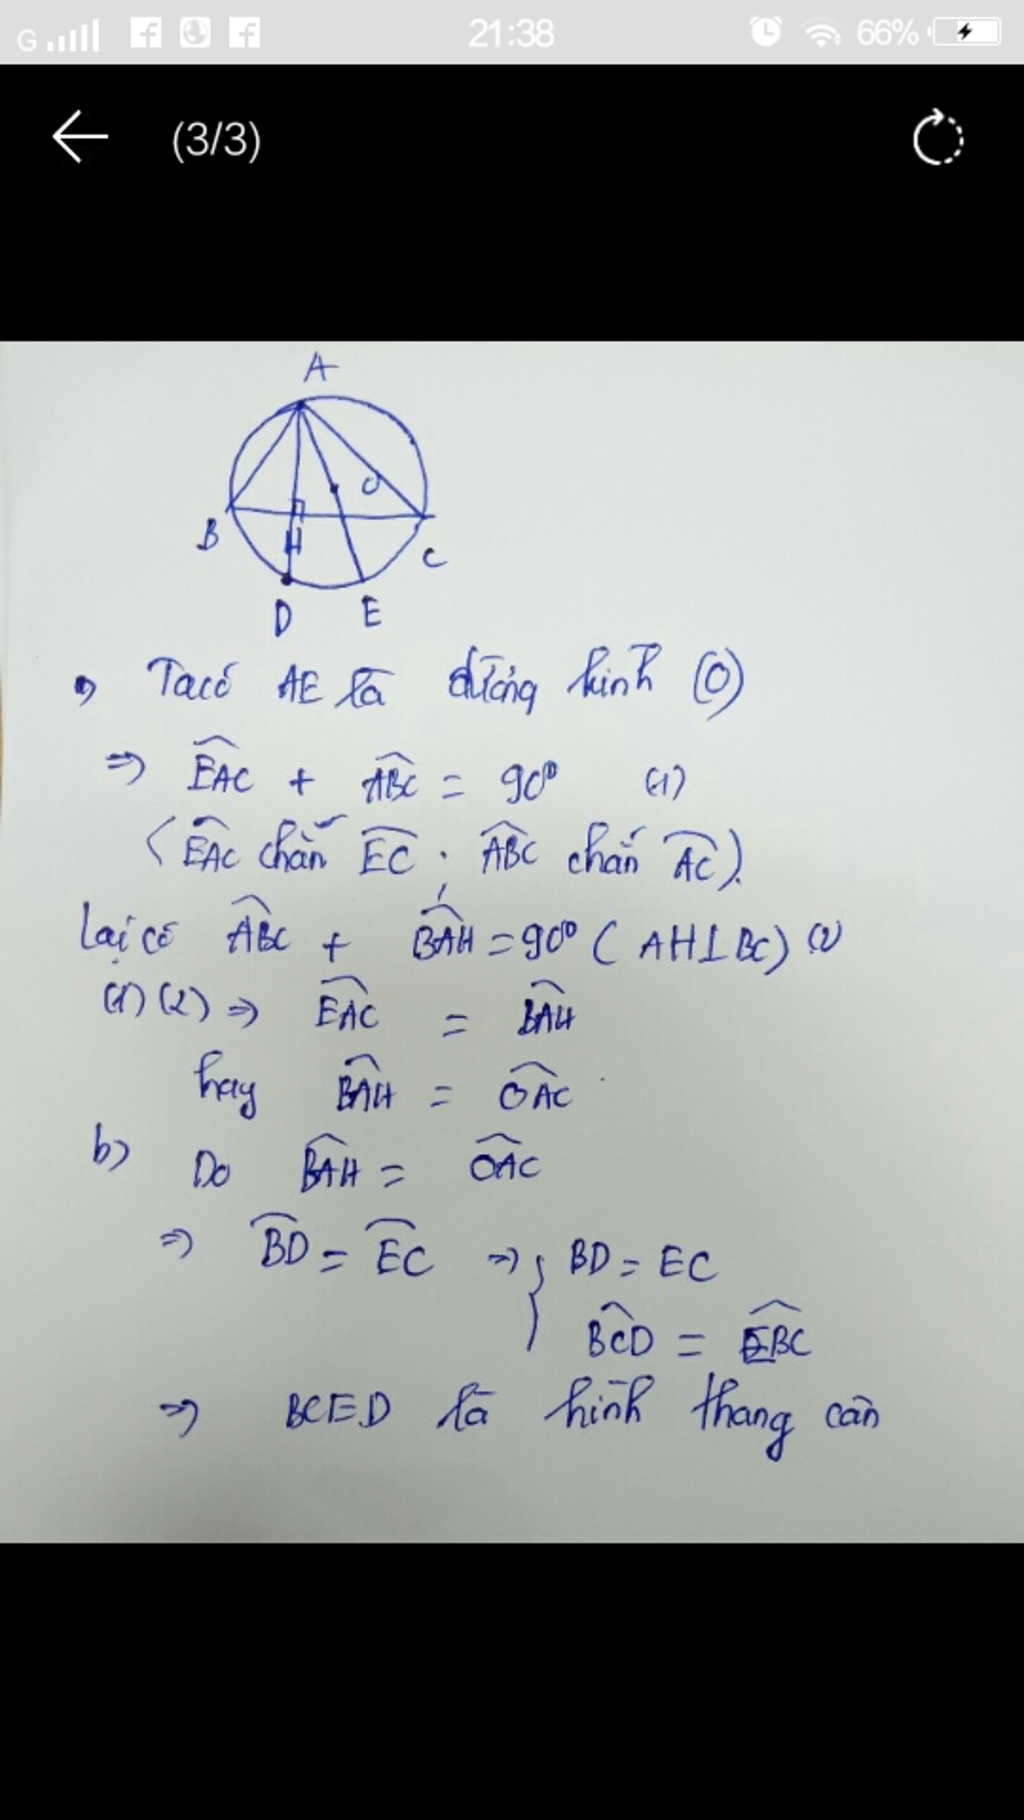 G 21:38 66%
(3/3)
A
O
B H C
D E
a) Ta có AE là đường kính (O)
=> EAC + ABC = 90° (1)
(EAC chắn EC . ABC chắn AC).
Lại có ABC + BAH = 90° (AH⊥BC) (2)
(1) (2) => EAC = BAH
hay BAH = OAC
b) Do BAH = OAC
=> BD = EC => { BD = EC
BCD = EBC
=> BCED là hình thang cân